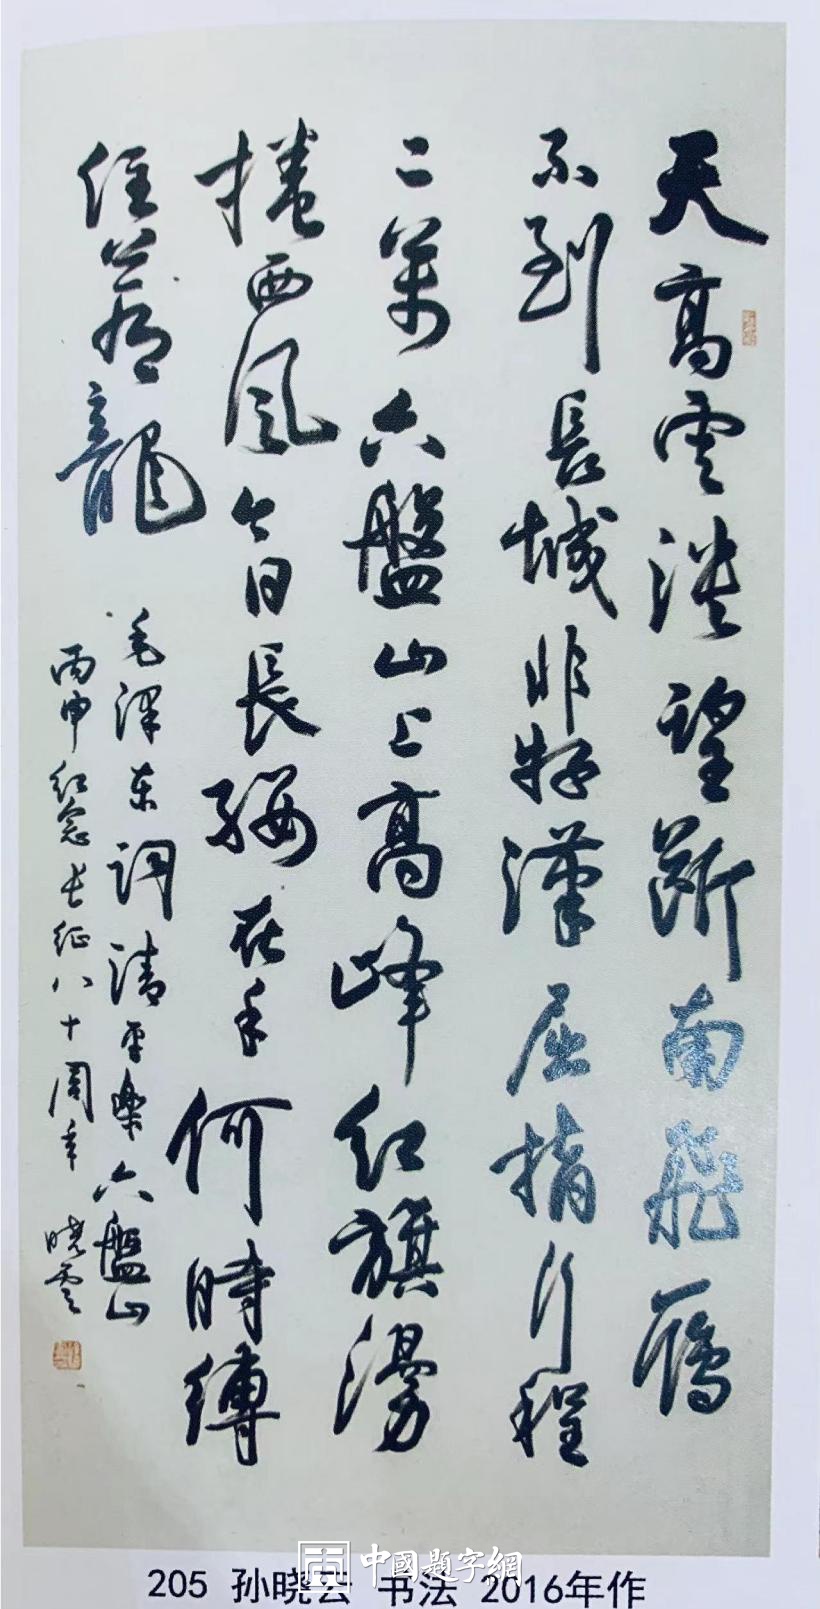 天高雲淡望斷南飛雁
不到長城非好漢屈指行程
二萬六盤山上高峰紅旗漫
捲西風今日長纓在手何時縛
住蒼龍
毛澤東詞清平樂六盤山
丙申紀念長征八十周年 曉雲
中國題字網
205 孙晓云 书法 2016年作